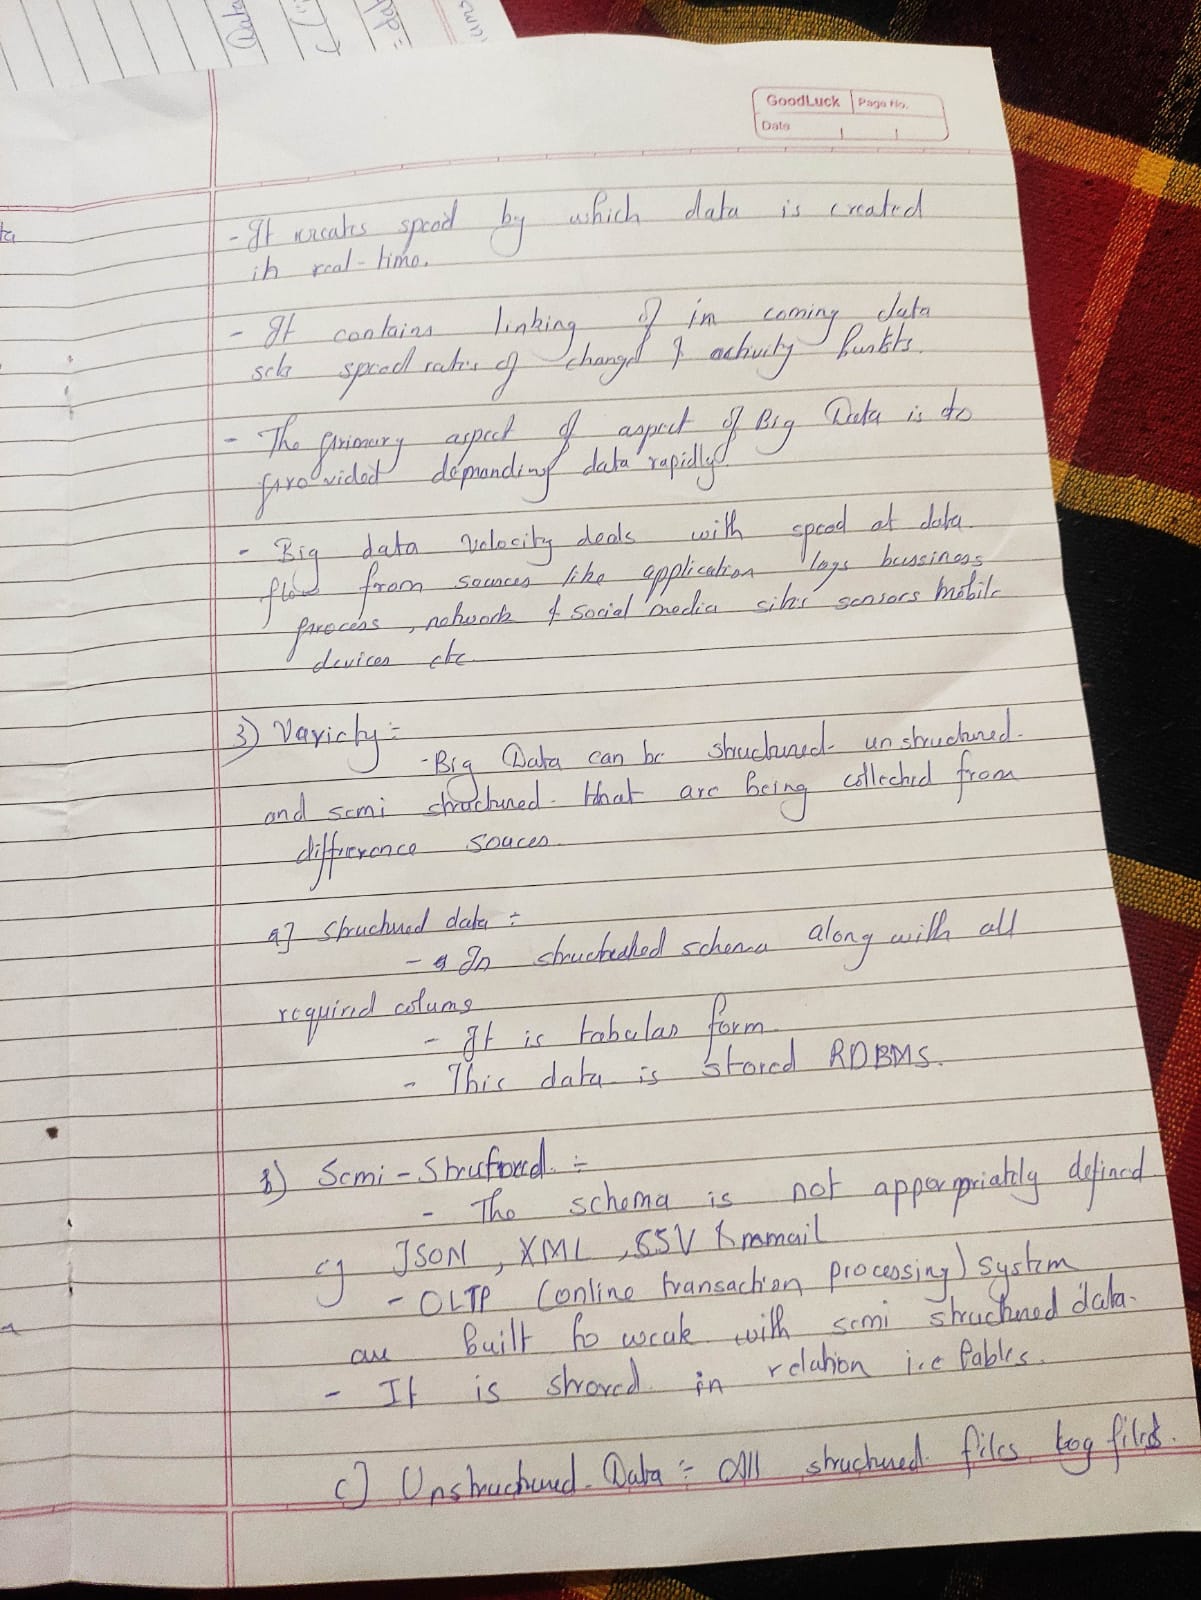 GoodLuck Page No.
Date
Data
- It creates speed by which data is created
in real-time.
- It contains linking of in coming data
sets speed rates of changed & activity bursts.
- The primary aspect of aspect of Big Data is to
provided demanding data rapidly.
- Big data Velocity deals with speed at data
flow from sources like application logs bussiness
process, network & social media sites sensors mobile
devices etc.
3) Variety :-
- Big Data can be structured unstructured
and semi structured that are being collected from
diffrerence souces.
a] Structured data :-
- In structured schema along with all
required colums
- It is tabular form
- This data is stored RDBMS.
b) Semi-Structured :-
- The schema is not apperpriately defined
eg JSON, XML, SSV
- OLTP (online transaction processing) system
are built to weak with semi structured data.
- It is strored in relation i.e tables.
c] Unstructured Data :- All structured files log files.